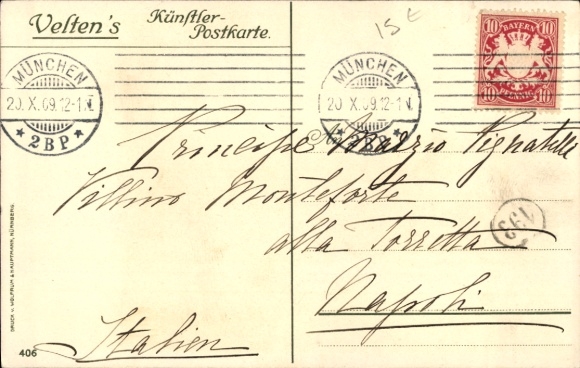 Velten's Künstler-
Postkarte.
15 E
BAYERN
10 10
10 PFENNIG 10
MÜNCHEN
20. X. 09. 12-1 N.
★ 2BP ★
MÜNCHEN
20. X. 09. 12-1 N.
Principe Pignatelli
Villino Monteforte
alla Torretta
Napoli
Italien
133
406
DRUCK v. WOLFRUM & HAUPTMANN, NÜRNBERG.